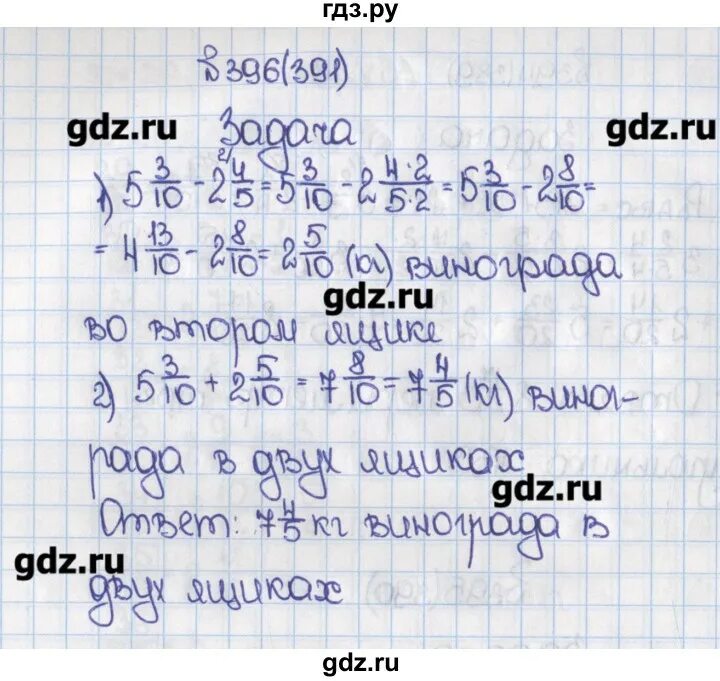 гдз.ру
№396(391)
gdz.ru
Задача
gdz.ru
1) 5 3/10 - 2 4/5 = 5 3/10 - 2 4·2/5·2 = 5 3/10 - 2 8/10 =
= 4 13/10 - 2 8/10 = 2 5/10 (кг) винограда
gdz.ru
во втором ящике
2) 5 3/10 + 2 5/10 = 7 8/10 = 7 4/5 (кг) виног-
рада в двух ящиках
gdz.ru
Ответ: 7 4/5 кг винограда в
gdz.ru
двух ящиках
gdz.ru